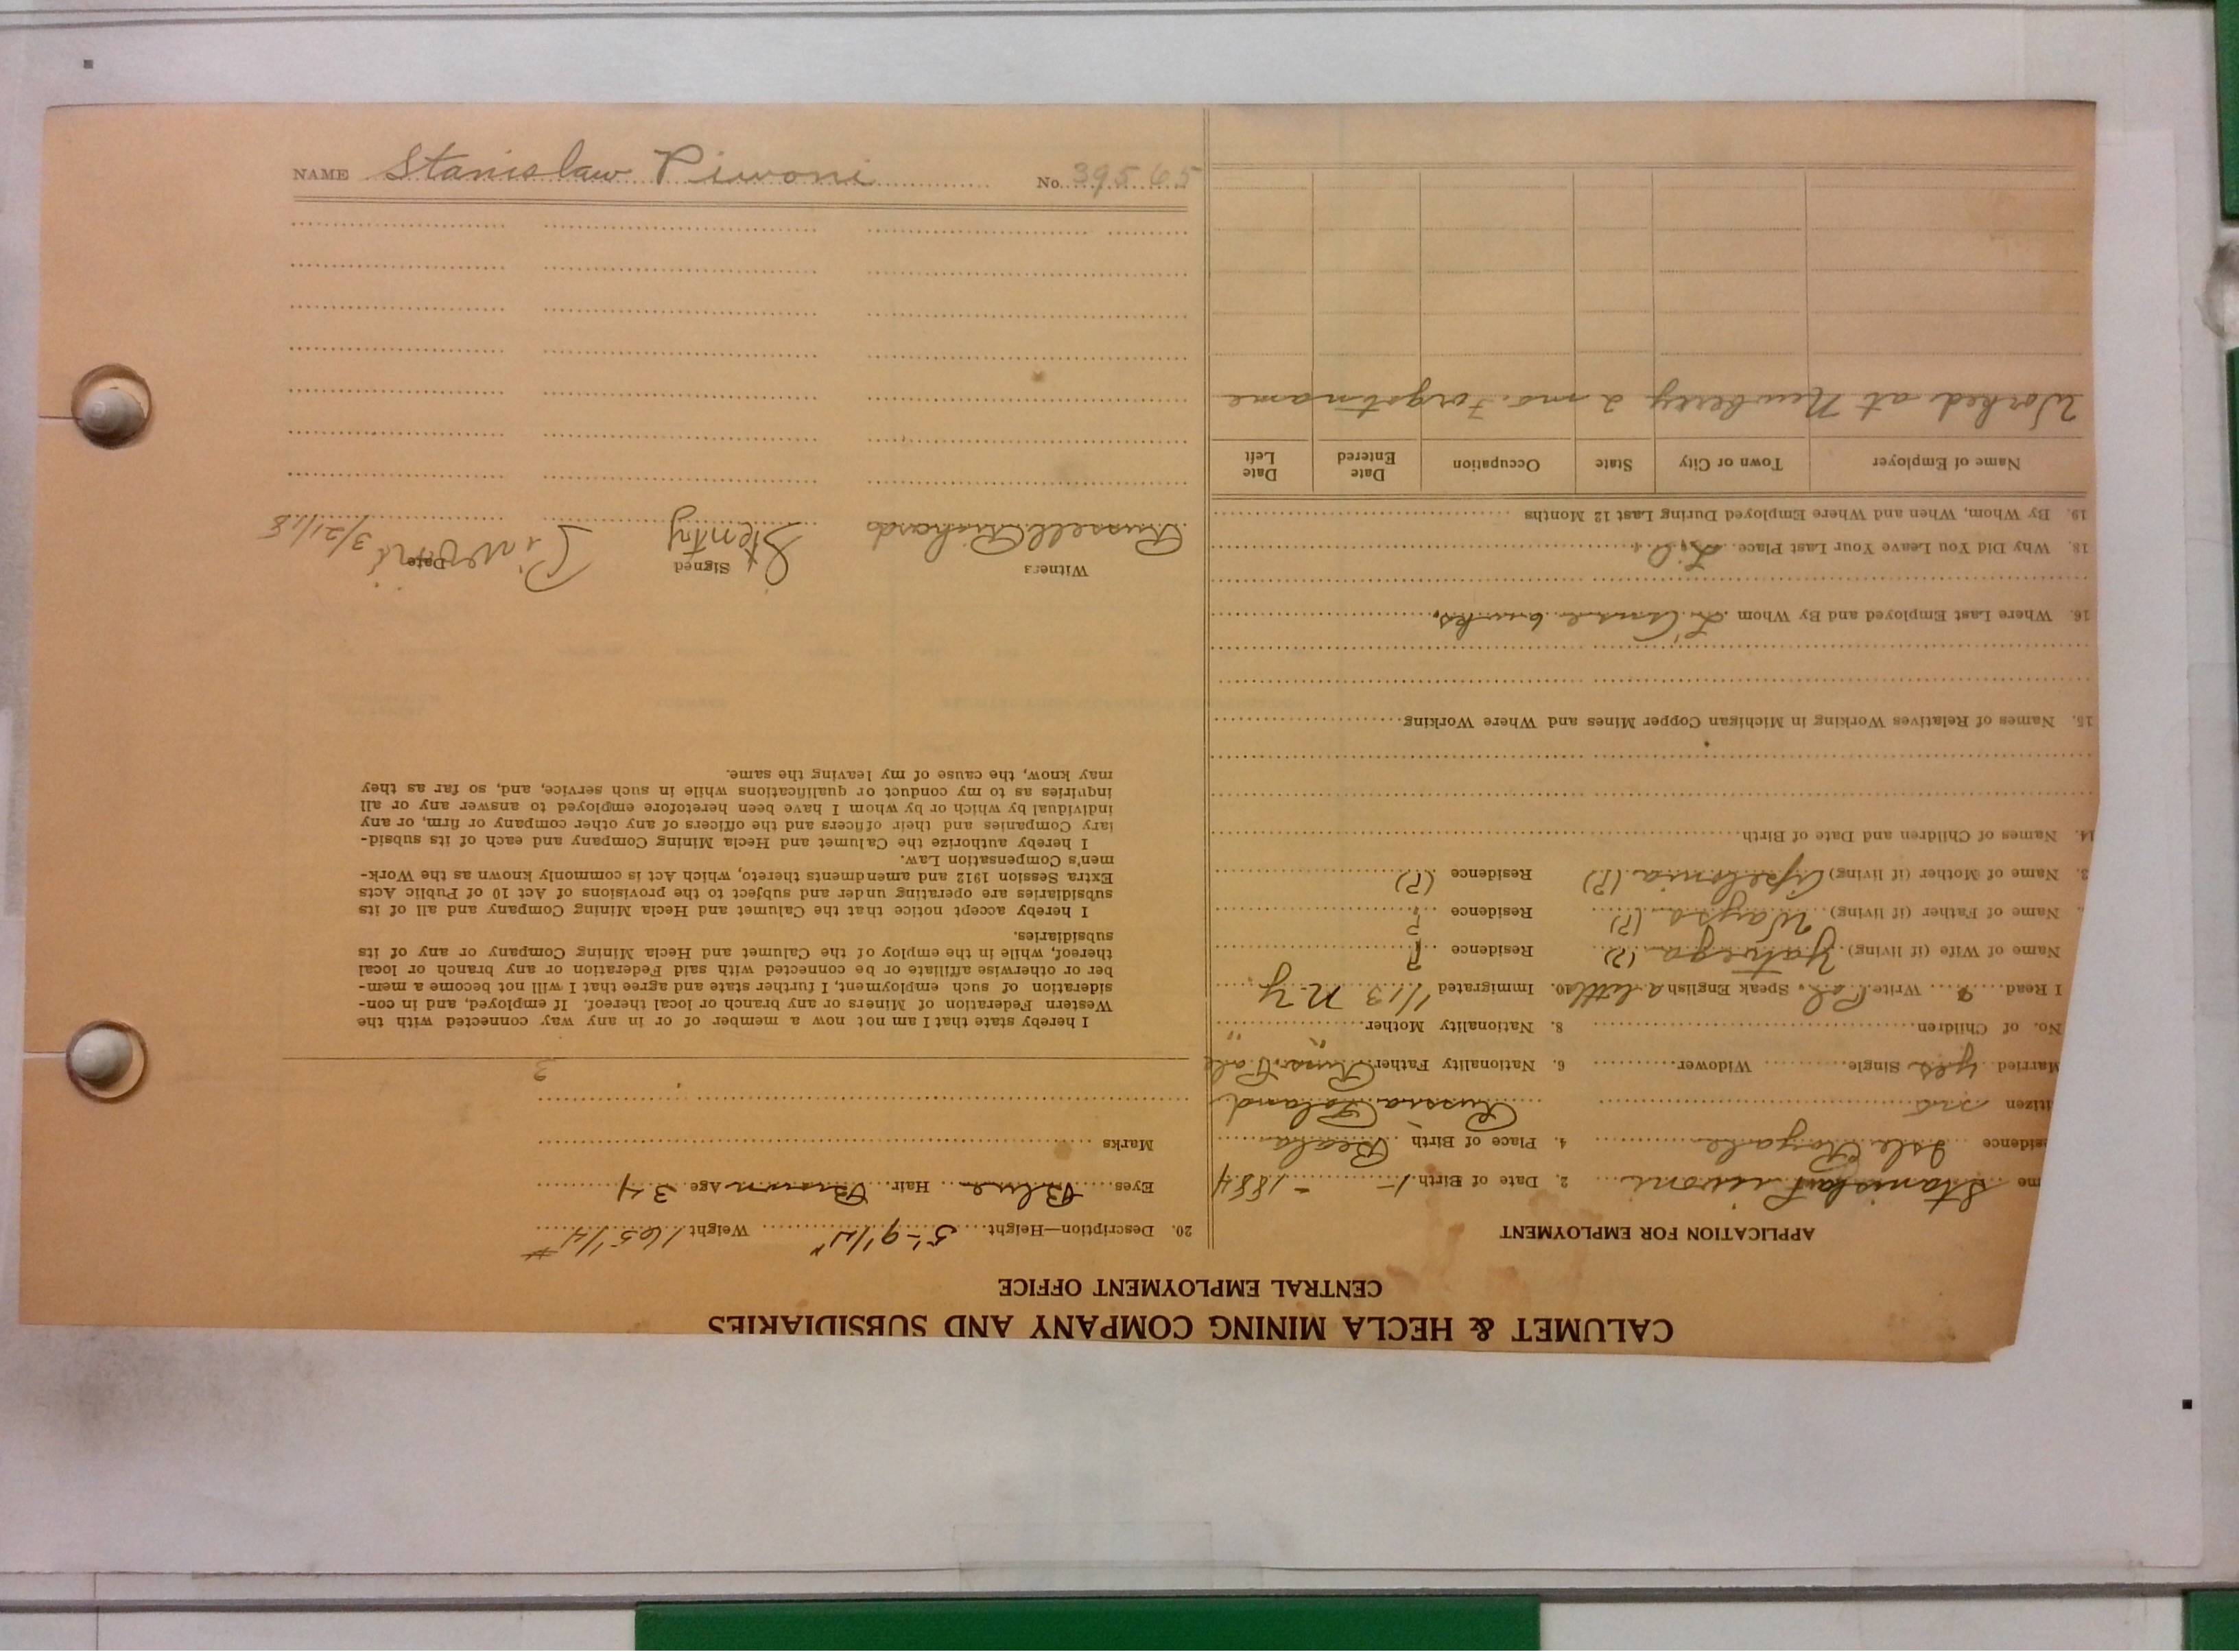 NAME Stanislaw Piwoni No. 39565
CALUMET & HECLA MINING COMPANY AND SUBSIDIARIES
CENTRAL EMPLOYMENT OFFICE
APPLICATION FOR EMPLOYMENT
me Stanislaw Piwoni 2. Date of Birth 1 - 1884
sidence Isle Royale 4. Place of Birth
itizen no Russia Poland
Married yes Single Widower 6. Nationality Father Russ. Pole
No. of Children 8. Nationality Mother " "
I Read Write Pol, Speak English a little 10. Immigrated 1/13 N Y.
Name of Wife (if living) (?) Residence ?
Name of Father (if living) (?) Residence ?
3. Name of Mother (if living) (?) Residence (?)
14. Names of Children and Date of Birth
15. Names of Relatives Working in Michigan Copper Mines and Where Working
16. Where Last Employed and By Whom L'Anse
18. Why Did You Leave Your Last Place
19. By Whom, When and Where Employed During Last 12 Months
Name of Employer Town or City State Occupation Date Entered Date Left
Worked at Newberry 2 mo. Forgot name
20. Description—Height 5'-9 1/2" Weight 165 1/4 #
Eyes Blue Hair Brown Age 34
Marks
3
I hereby state that I am not now a member of or in any way connected with the
Western Federation of Miners or any branch or local thereof. If employed, and in con-
sideration of such employment, I further state and agree that I will not become a mem-
ber or otherwise affiliate or be connected with said Federation or any branch or local
thereof, while in the employ of the Calumet and Hecla Mining Company or any of its
subsidiaries.
I hereby accept notice that the Calumet and Hecla Mining Company and all of its
subsidiaries are operating under and subject to the provisions of Act 10 of Public Acts
Extra Session 1912 and amendments thereto, which Act is commonly known as the Work-
men's Compensation Law.
I hereby authorize the Calumet and Hecla Mining Company and each of its subsid-
iary Companies and their officers and the officers of any other company or firm, or any
individual by which or by whom I have been heretofore employed to answer any or all
inquiries as to my conduct or qualifications while in such service, and, so far as they
may know, the cause of my leaving the same.
Witness Signed Date
Russell Richards 3/21/18